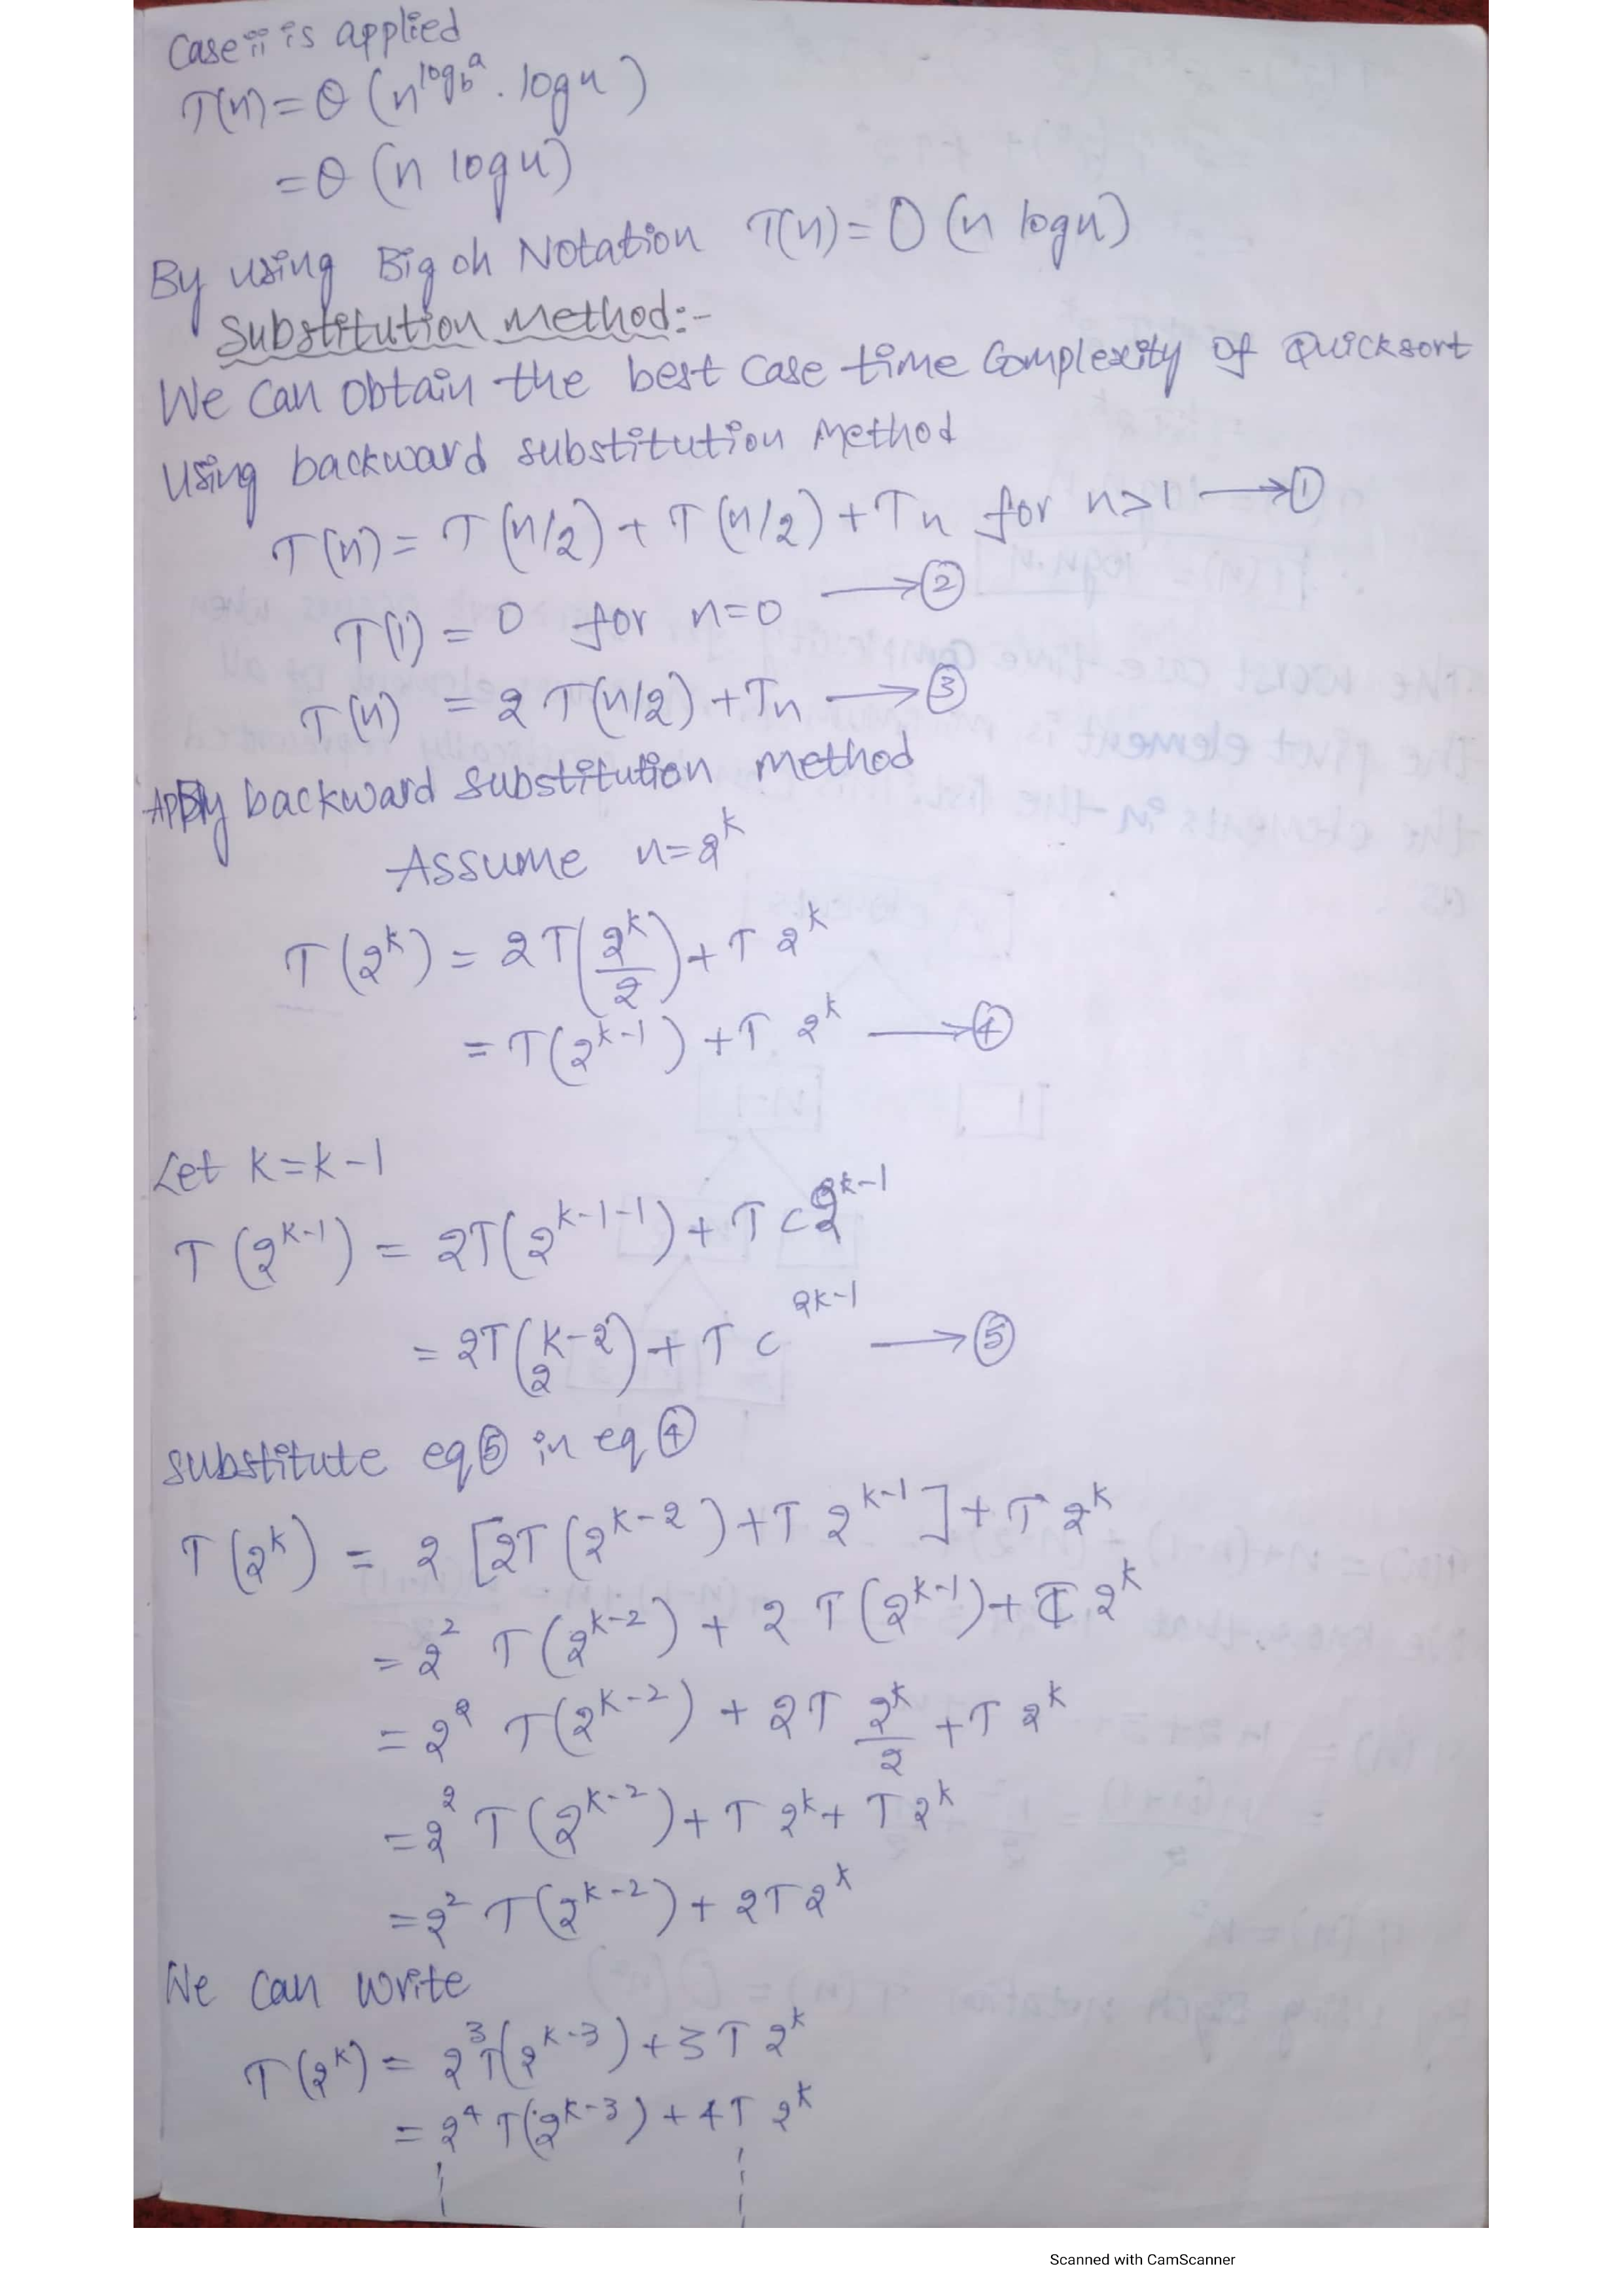 Case ii is applied
T(n) = θ (n^log_b^a . log n)
= θ (n log n)
By using Big oh Notation T(n) = O (n log n)
Substitution Method:-
We can obtain the best case time Complexity of Quicksort
Using backward substitution Method
T(n) = T(n/2) + T(n/2) + Tn for n>1 → ①
T(1) = 0 for n=0 → ②
T(n) = 2 T(n/2) + Tn → ③
Apply backward substitution method
Assume n=2^k
T(2^k) = 2T(2^k/2) + T 2^k
= T(2^k-1) + T 2^k → ④
Let k=k-1
T(2^k-1) = 2T(2^k-1-1) + T c2^k-1
= 2T(2^k-2) + T c^2k-1 → ⑤
substitute eq ⑤ in eq ④
T(2^k) = 2 [2T(2^k-2) + T 2^k-1] + T 2^k
= 2^2 T(2^k-2) + 2 T(2^k-1) + T 2^k
= 2^2 T(2^k-2) + 2T 2^k/2 + T 2^k
= 2^2 T(2^k-2) + T 2^k + T 2^k
= 2^2 T(2^k-2) + 2T 2^k
We can write
T(2^k) = 2^3 T(2^k-3) + 3T 2^k
= 2^4 T(2^k-3) + 4T 2^k
Scanned with CamScanner